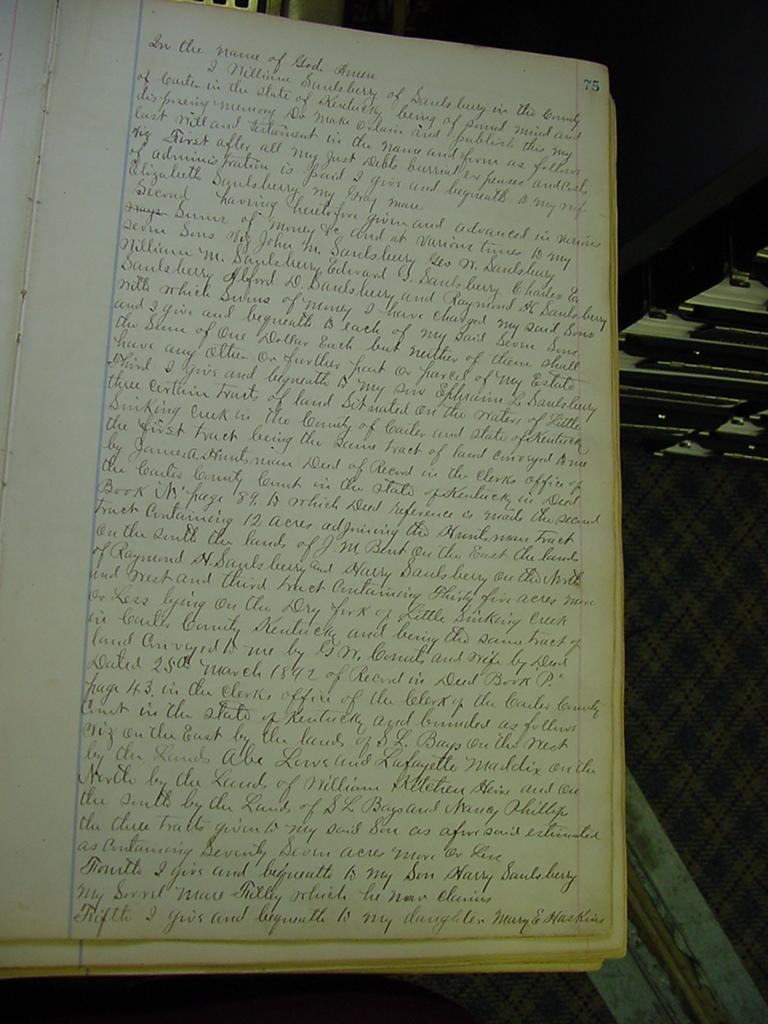 75
In the name of God. Amen
I William Saulsberry of Saulsbery in the County
of Carter in the State of Kentucky being of sound mind and
disposing memory Do make Ordain and publish this my
last will and testament in the name and form as follows
Viz First after all my just Debts burrial expenses and Costs
of administration is paid I give and bequeath to my wife
Elizabeth Saulsberry my Gray mare
Second having heretofore given and advanced in various
Sums of money &c and at various times to my
seven Sons Viz John M. Saulsberry Geo W. Saulsberry
William M. Saulsberry Edward S. Saulsberry Charles E.
Saulsberry Alford D. Saulsberry and Raymond H. Saulsberry
with which Sums of money I have charged my said Sons
and I give and bequeath to each of my said Seven Sons
the Sum of One Dollar Each but neither of them shall
have any Other Or further part Or parcel of my Estate
Third I give and bequeath to my son Ephraim L. Saulsberry
three certain tracts of land Situated On the waters of Little
Sinking Creek in the County of Carter and State of Kentucky
the first tract being the same tract of land conveyed to me
by James A. Huntsman Deed of Record in the Clerks office of
the Carter County Court in the State of Kentucky in Deed
Book "N" page 89. to which Deed reference is made the second
tract Containing 12 acres adjoining the Huntsman tract
On the south the lands of J. M. On the East the lands
of Raymond H. Saulsberry and Harry Saulsberry on the North
and West and third tract Containing Thirty five acres more
Or Less lying On the Dry fork of Little Sinking Creek
in Carter County Kentucky and being the same tract of
land Conveyed to me by G. W. and wife by Deed
Dated 25th March 1892 of Record in Deed Book P."
page 43. in the Clerks office of the Clerk of the Carter County
Court in the State of Kentucky and bounded as follows
Viz On the East by the lands of S. L. Bays On the West
by the Lands Abe Lowe and Lafayette Maddix on the
North by the Lands of William Kitchen Heirs and On
the South by the Lands of S L Bays and Nancy Phillips
the three tracts given to my said Son as afore said estimated
as Containing Seventy Seven acres more Or Less
Fourth I give and bequeath to my Son Harry Saulsberry
my Sorrel mare Filley which he now claims
Fifth I give and bequeath to my daughter Mary E Haskins